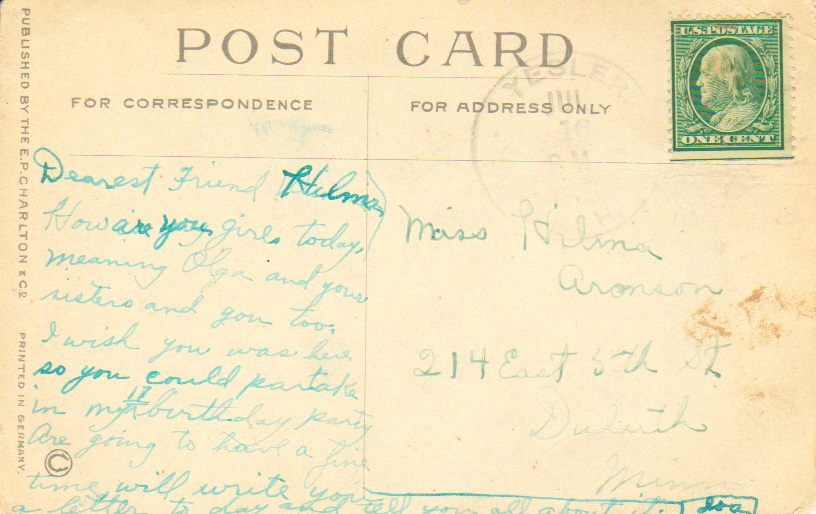 POST CARD
FOR CORRESPONDENCE
FOR ADDRESS ONLY
U.S. POSTAGE
ONE CENT
YESLER
JUL
16
PUBLISHED BY THE E.P. CHARLTON & CO. PRINTED IN GERMANY.
©
Dearest Friend Hilma
How are you girls today,
meaning Olga and your
sisters and you too.
I wish you was here
so you could partake
in my 17 birthday party
Are going to have a fine
time will write you
a letter to day and tell you all about it. Eva
Miss Hilma
Aronson
214 East 5th St
Duluth
Minn